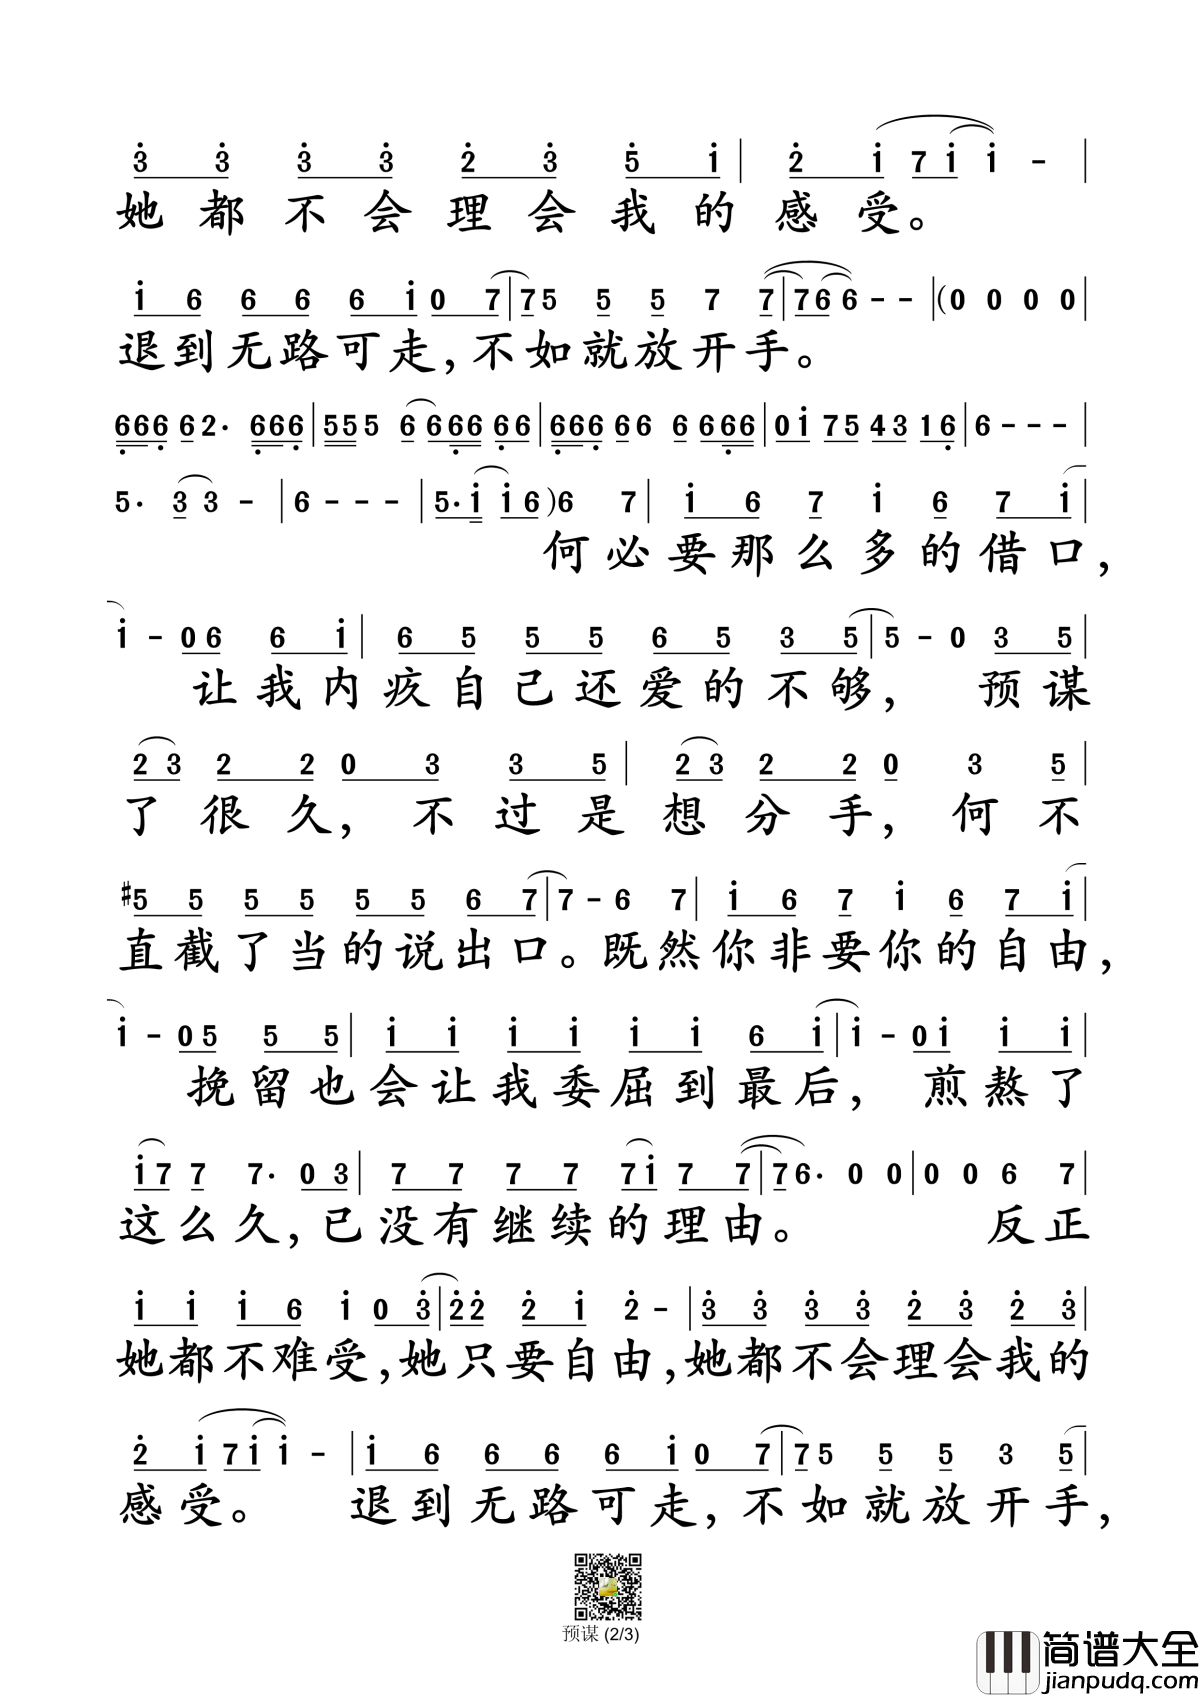 3 3 3 3 2 3 5 1 | 2 1 7 1 1 - |
她都不会理会我的感受。
1 6 6 6 6 1 0 7 | 7 5 5 5 7 7 | 7 6 6 - - | (0 0 0 0 |
退到无路可走,不如就放开手。
6 6 6 6 2· 6 6 6 | 5 5 5 5 6 6 6 6 6 6 | 6 6 6 6 6 6 6 6 6 | 0 1 7 5 4 3 1 6 | 6 - - - |
5· 3 3 - | 6 - - - | 5· 1 1 6 ) 6 7 | 1 6 7 1 6 7 1 |
何必要那么多的借口,
1 - 0 6 6 1 | 6 5 5 5 6 5 3 5 | 5 - 0 3 5 |
让我内疚自己还爱的不够,预谋
2 3 2 2 0 3 3 5 | 2 3 2 2 0 3 5 |
了很久,不过是想分手,何不
#5 5 5 5 5 5 6 7 | 7 - 6 7 | 1 6 7 1 6 7 1 |
直截了当的说出口。既然你非要你的自由,
1 - 0 5 5 5 | 1 1 1 1 1 1 6 1 | 1 - 0 1 1 1 |
挽留也会让我委屈到最后,煎熬了
1 7 7 7· 0 3 | 7 7 7 7 7 1 7 7 | 7 6· 0 0 | 0 0 6 7 |
这么久,已没有继续的理由。反正
1 1 1 6 1 0 3 | 2 2 2 1 2 - | 3 3 3 3 2 3 2 3 |
她都不难受,她只要自由,她都不会理会我的
2 1 7 1 1 - | 1 6 6 6 6 1 0 7 | 7 5 5 5 3 5 |
感受。退到无路可走,不如就放开手,
预谋 (2/3)
简谱大全
jianpudq.com